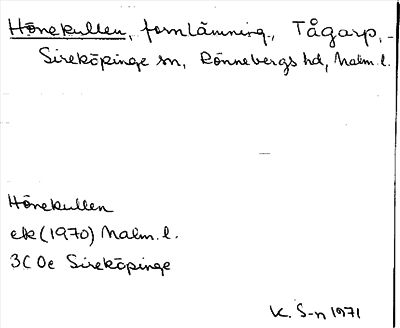 Hönekullen, fornlämning, Tågarp,
Sireköpinge sn, Rönnebergs hd, Malm. l.
Hönekullen
ek (1970) Malm. l.
3C 0e Sireköpinge
K. S-n 1971